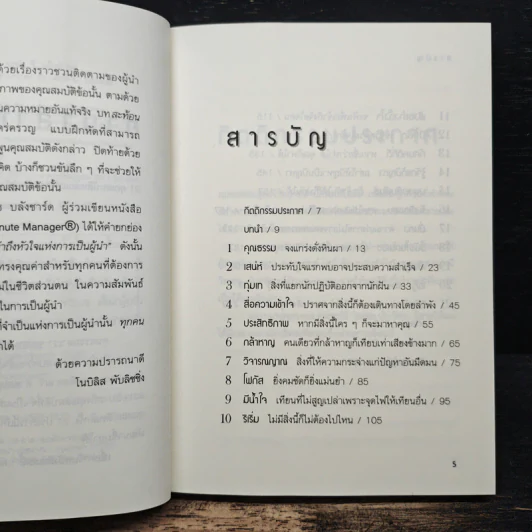 ด้วยเรื่องราวชวนติดตามของผู้นำ
ภาพของคุณสมบัติข้อนั้น ตามด้วย
ความหมายอันแท้จริง บทสะท้อน
ใคร่ครวญ แบบฝึกหัดที่สามารถ
พูนคุณสมบัติดังกล่าว ปิดท้ายด้วย
คิด บ้างก็ชวนขันลึก ๆ ที่จะช่วยให้
คุณสมบัติข้อนั้น
บลังชาร์ด ผู้ร่วมเขียนหนังสือ
nute Manager®) ได้ให้คำยกย่อง
ถึงหัวใจแห่งการเป็นผู้นำ" ดังนั้น
ทรงคุณค่าสำหรับทุกคนที่ต้องการ
ในชีวิตส่วนตน ในความสัมพันธ์
ในการเป็นผู้นำ
จำเป็นแห่งการเป็นผู้นำนั้น ทุกคน
ได้
ด้วยความปรารถนาดี
โนบิลิส พับลิชชิ่ง
สารบัญ
กิตติกรรมประกาศ / 7
บทนำ / 9
1 คุณธรรม จงแกร่งดั่งหินผา / 13
2 เสน่ห์ ประทับใจแรกพบอาจประสบความสำเร็จ / 23
3 ทุ่มเท สิ่งที่แยกนักปฏิบัติออกจากนักฝัน / 33
4 สื่อความเข้าใจ ปราศจากสิ่งนี้ก็ต้องเดินทางโดยลำพัง / 45
5 ประสิทธิภาพ หากมีสิ่งนี้ใคร ๆ ก็จะมาหาคุณ / 55
6 กล้าหาญ คนเดียวที่กล้าหาญก็เทียบเท่าเสียงข้างมาก / 65
7 วิจารณญาณ สิ่งที่ให้ความกระจ่างแก่ปัญหาอันมืดมน / 75
8 โฟกัส ยิ่งคมชัดก็ยิ่งแม่นยำ / 85
9 มีน้ำใจ เทียนที่ไม่สูญเปล่าเพราะจุดไฟให้เทียนอื่น / 95
10 ริเริ่ม ไม่มีสิ่งนี้ก็ไม่ต้องไปไหน / 105
5